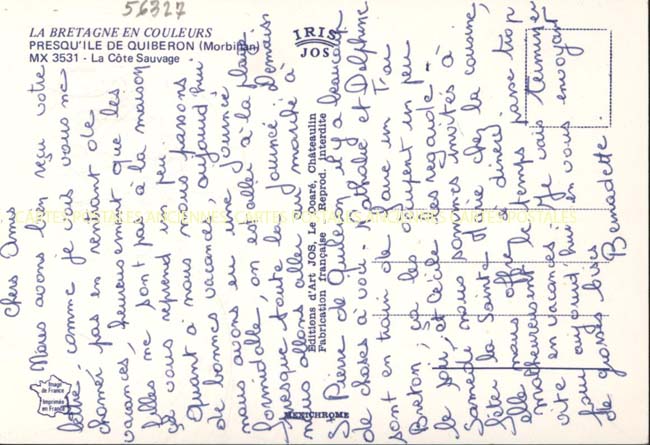 56327
LA BRETAGNE EN COULEURS
PRESQU'ILE DE QUIBERON (Morbihan)
MX 3531 - La Côte Sauvage
IRIS
JOS
Editions d'Art JOS, Le Doaré, Châteaulin
Fabrication française Reprod. Interdite
Image de France
Imprimée en France
MEXICHROME
CARTES POSTALES ANCIENNES CARTES POSTALES ANCIENNES CARTES POSTALES
chers Amis
Nous avons bien reçu votre
lettre comme je vois vous ne
chomez pas en rentrant de
vacances, heureusement que les
filles ne sont pas à la maison
ça vous reprend un peu.
Quant à nous nous passons
de bonnes vacances, aujourd'hui
nous avons eu une journée
formidable, on est allé à la plage
presque toute la journée. Demain
nous allons aller au marché à
St Pierre de Quiberon il y a beaucoup
de choses à voir. Nathalie et Delphine
sont en train de jouer avec un Tiac
Breton, ça les occupent un peu
le soir, et Cécile les regarde.
Samedi nous sommes invités à
fêter la Sainte Marie chez la cousine,
elle nous offre à diner.
malheureusement le temps passe trop
vite en vacances. Je vais terminer
pour aujourd'hui en vous envoyant
de grosses bises
Bernadette.